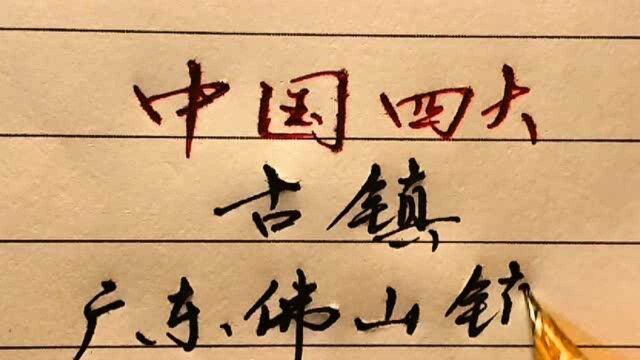 中国四大
古镇
广东佛山